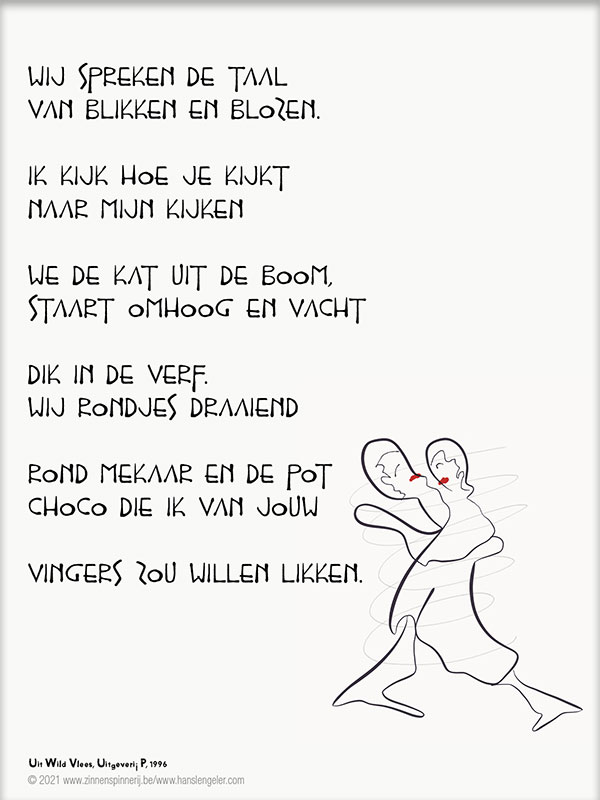 WIJ SPREKEN DE TAAL
VAN BLIKKEN EN BLOZEN.
IK KIJK HOE JE KIJKT
NAAR MIJN KIJKEN
WE DE KAT UIT DE BOOM,
STAART OMHOOG EN VACHT
DIK IN DE VERF.
WIJ RONDJES DRAAIEND
ROND MEKAAR EN DE POT
CHOCO DIE IK VAN JOUW
VINGERS ZOU WILLEN LIKKEN.
Uit Wild Vlees, Uitgeverij P, 1996
© 2021 www.zinnenspinnerij.be/www.hanslengeler.com